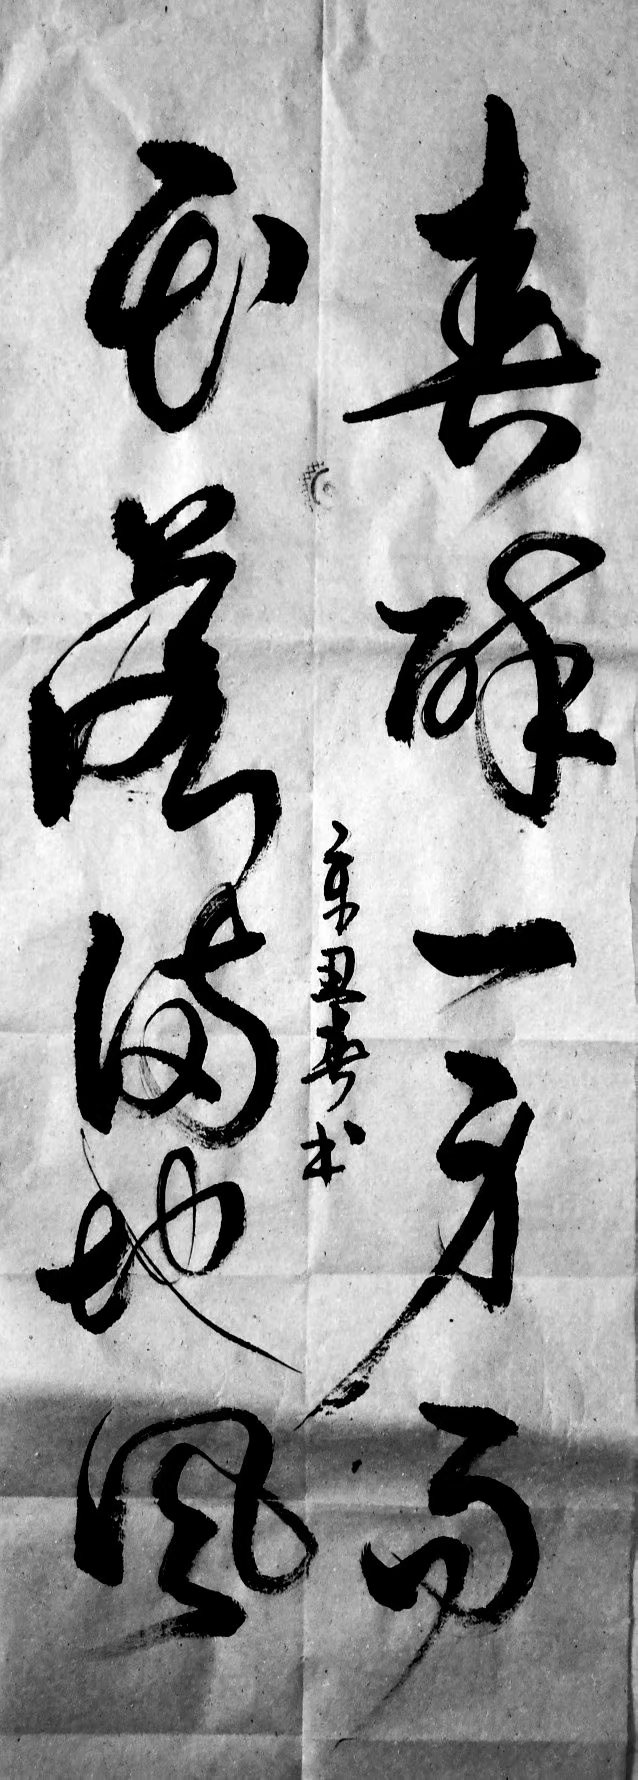 春醉一身雨
花落满地风
辛丑春书